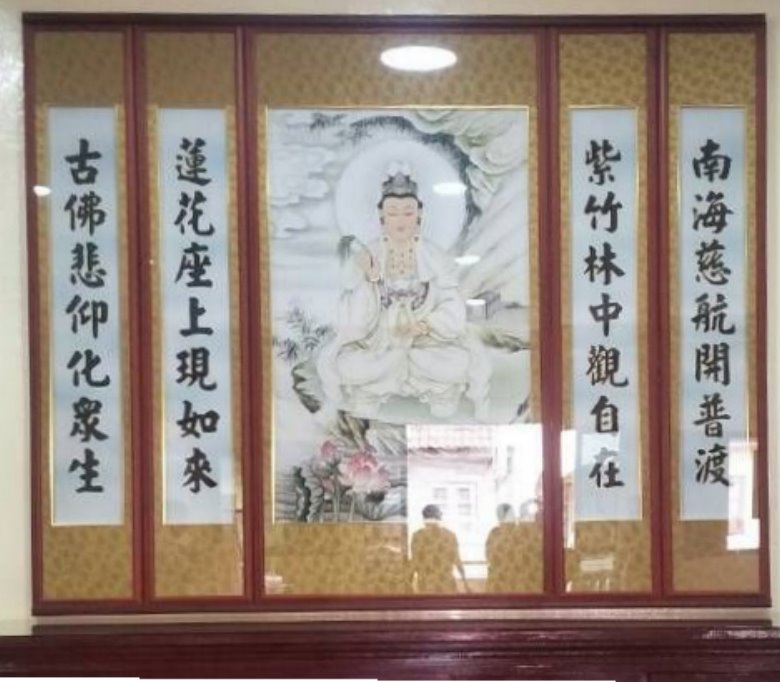 南海慈航開普渡
紫竹林中觀自在
蓮花座上現如來
古佛悲仰化眾生